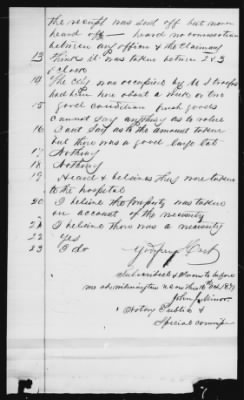 the receipt was sent off but never
heard of — heard no conversation
between any officer & the claimant
13 think it was taken between 2 & 3
o'clock
14 The City was occupied by U S troops
had been here about a week or two
15 good condition fresh goods
cannot say anything as to value
16 I cant say as to the amount taken
but there was a good large lot
17 Nothing
18 Nothing
19 Heard & believes they were taken
to the hospital
20 I believe the property was taken
on account of the necessity
21 I believe there was a necessity
22 Yes
23 I do
Subscribed & Sworn to before
me at Wilmington
John J
Notary Public &
Special commiss